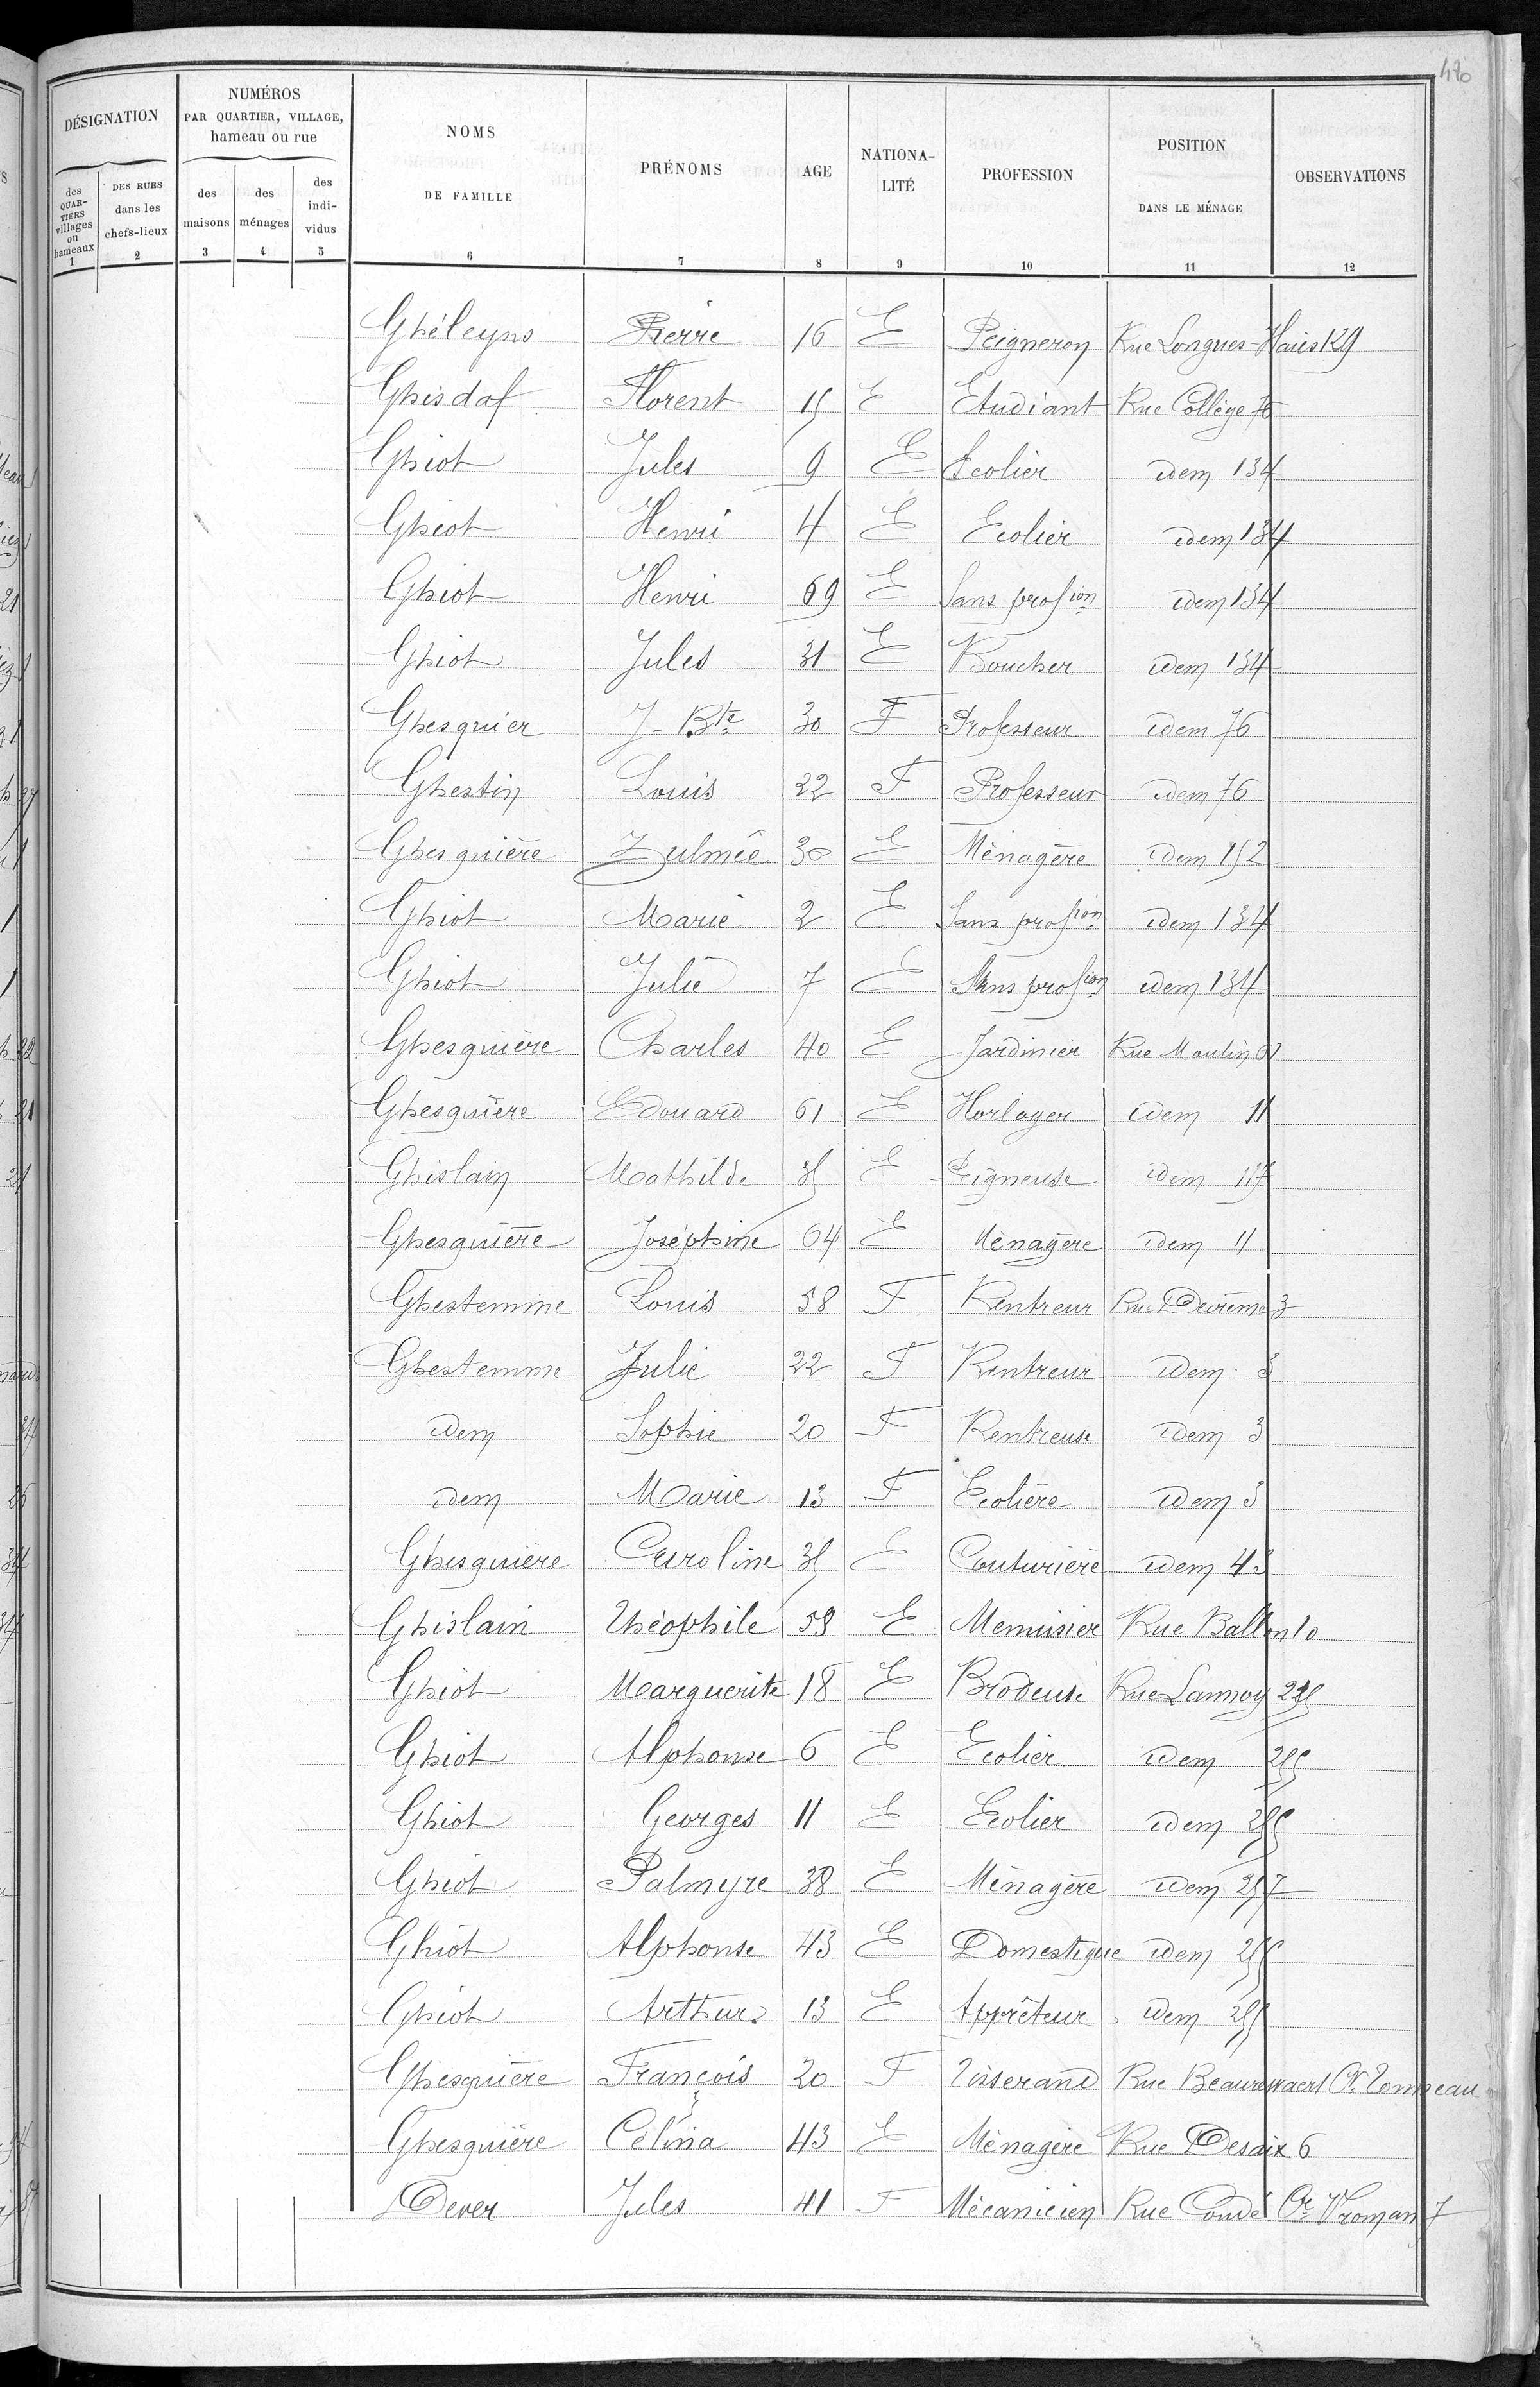 470
DÉSIGNATION
NUMÉROS
PAR QUARTIER, VILLAGE,
hameau ou rue
NOMS
DE FAMILLE
PRÉNOMS
AGE
NATIONA-
LITÉ
PROFESSION
POSITION
DANS LE MÉNAGE
OBSERVATIONS
des
QUAR-
TIERS
villages
ou
hameaux
DES RUES
dans les
chefs-lieux
des
maisons
des
ménages
des
indi-
vidus
1 2 3 4 5 6 7 8 9 10 11 12
Ghéleyns Pierre 16 E Peigneron Rue Longues-Haies 129
Ghisdaf Florent 15 E Etudiant Rue Collège 76
Ghiot Jules 9 E Ecolier idem 134
Ghiot Henri 4 E Ecolier idem 134
Ghiot Henri 69 E Sans profion idem 134
Ghiot Jules 31 E Boucher idem 134
Ghesquier J-Bte 30 F Professeur idem 76
Ghestin Louis 22 F Professeur idem 76
Ghesquière Zulmée 30 E Ménagère idem 152
Ghiot Marie 2 E Sans profion idem 134
Ghiot Julie 7 E Sans profion idem 134
Ghesquière Charles 40 E Jardinier Rue Moulin 61
Ghesquière Edouard 61 E Horloger idem 11
Ghislain Mathilde 35 E Peigneuse idem 117
Ghesquière Joséphine 64 E Ménagère idem 11
Ghestemme Louis 58 F Rentreur Rue 3
Ghestemme Julie 22 F Rentreur idem 3
idem Sophie 20 F Rentreuse idem 3
idem Marie 13 F Ecolière idem 3
Ghesquière Caroline 35 E Couturière idem 43
Ghislain Théophile 59 E Menuisier Rue Ballon 10
Ghiot Marguerite 18 E Brodeuse Rue Lannoy 255
Ghiot Alphonse 6 E Ecolier idem 255
Ghiot Georges 11 E Ecolier idem 255
Ghiot Palmyre 38 E Ménagère idem 257
Ghiot Alphonse 43 E Domestique idem 255
Ghiot Arthur 13 E Apprêteur idem 255
Ghesquière François 20 F Tisserand Rue Beaurewaert Cr Tonneau
Ghesquière Célina 43 E Ménagère Rue Desaix 6
Dever Jules 41 F Mécanicien Rue Condé Cr Vroman 7